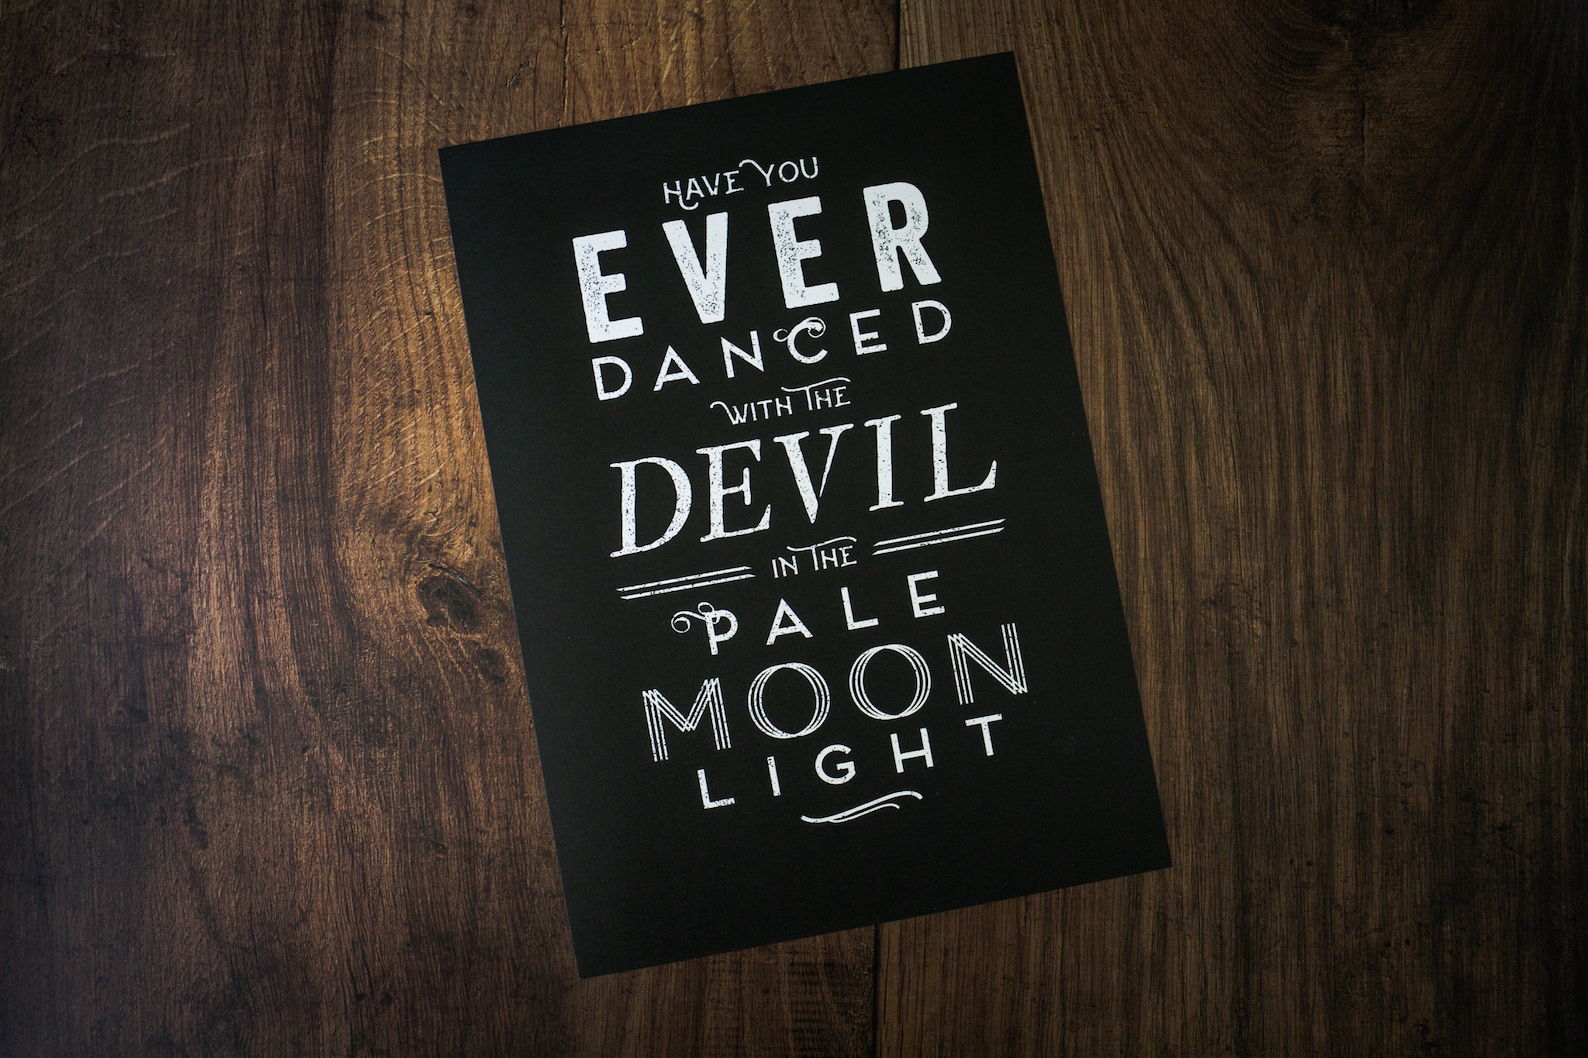 HAVE YOU
EVER
DANCED
WITH THE
DEVIL
IN THE
PALE
MOON
LIGHT